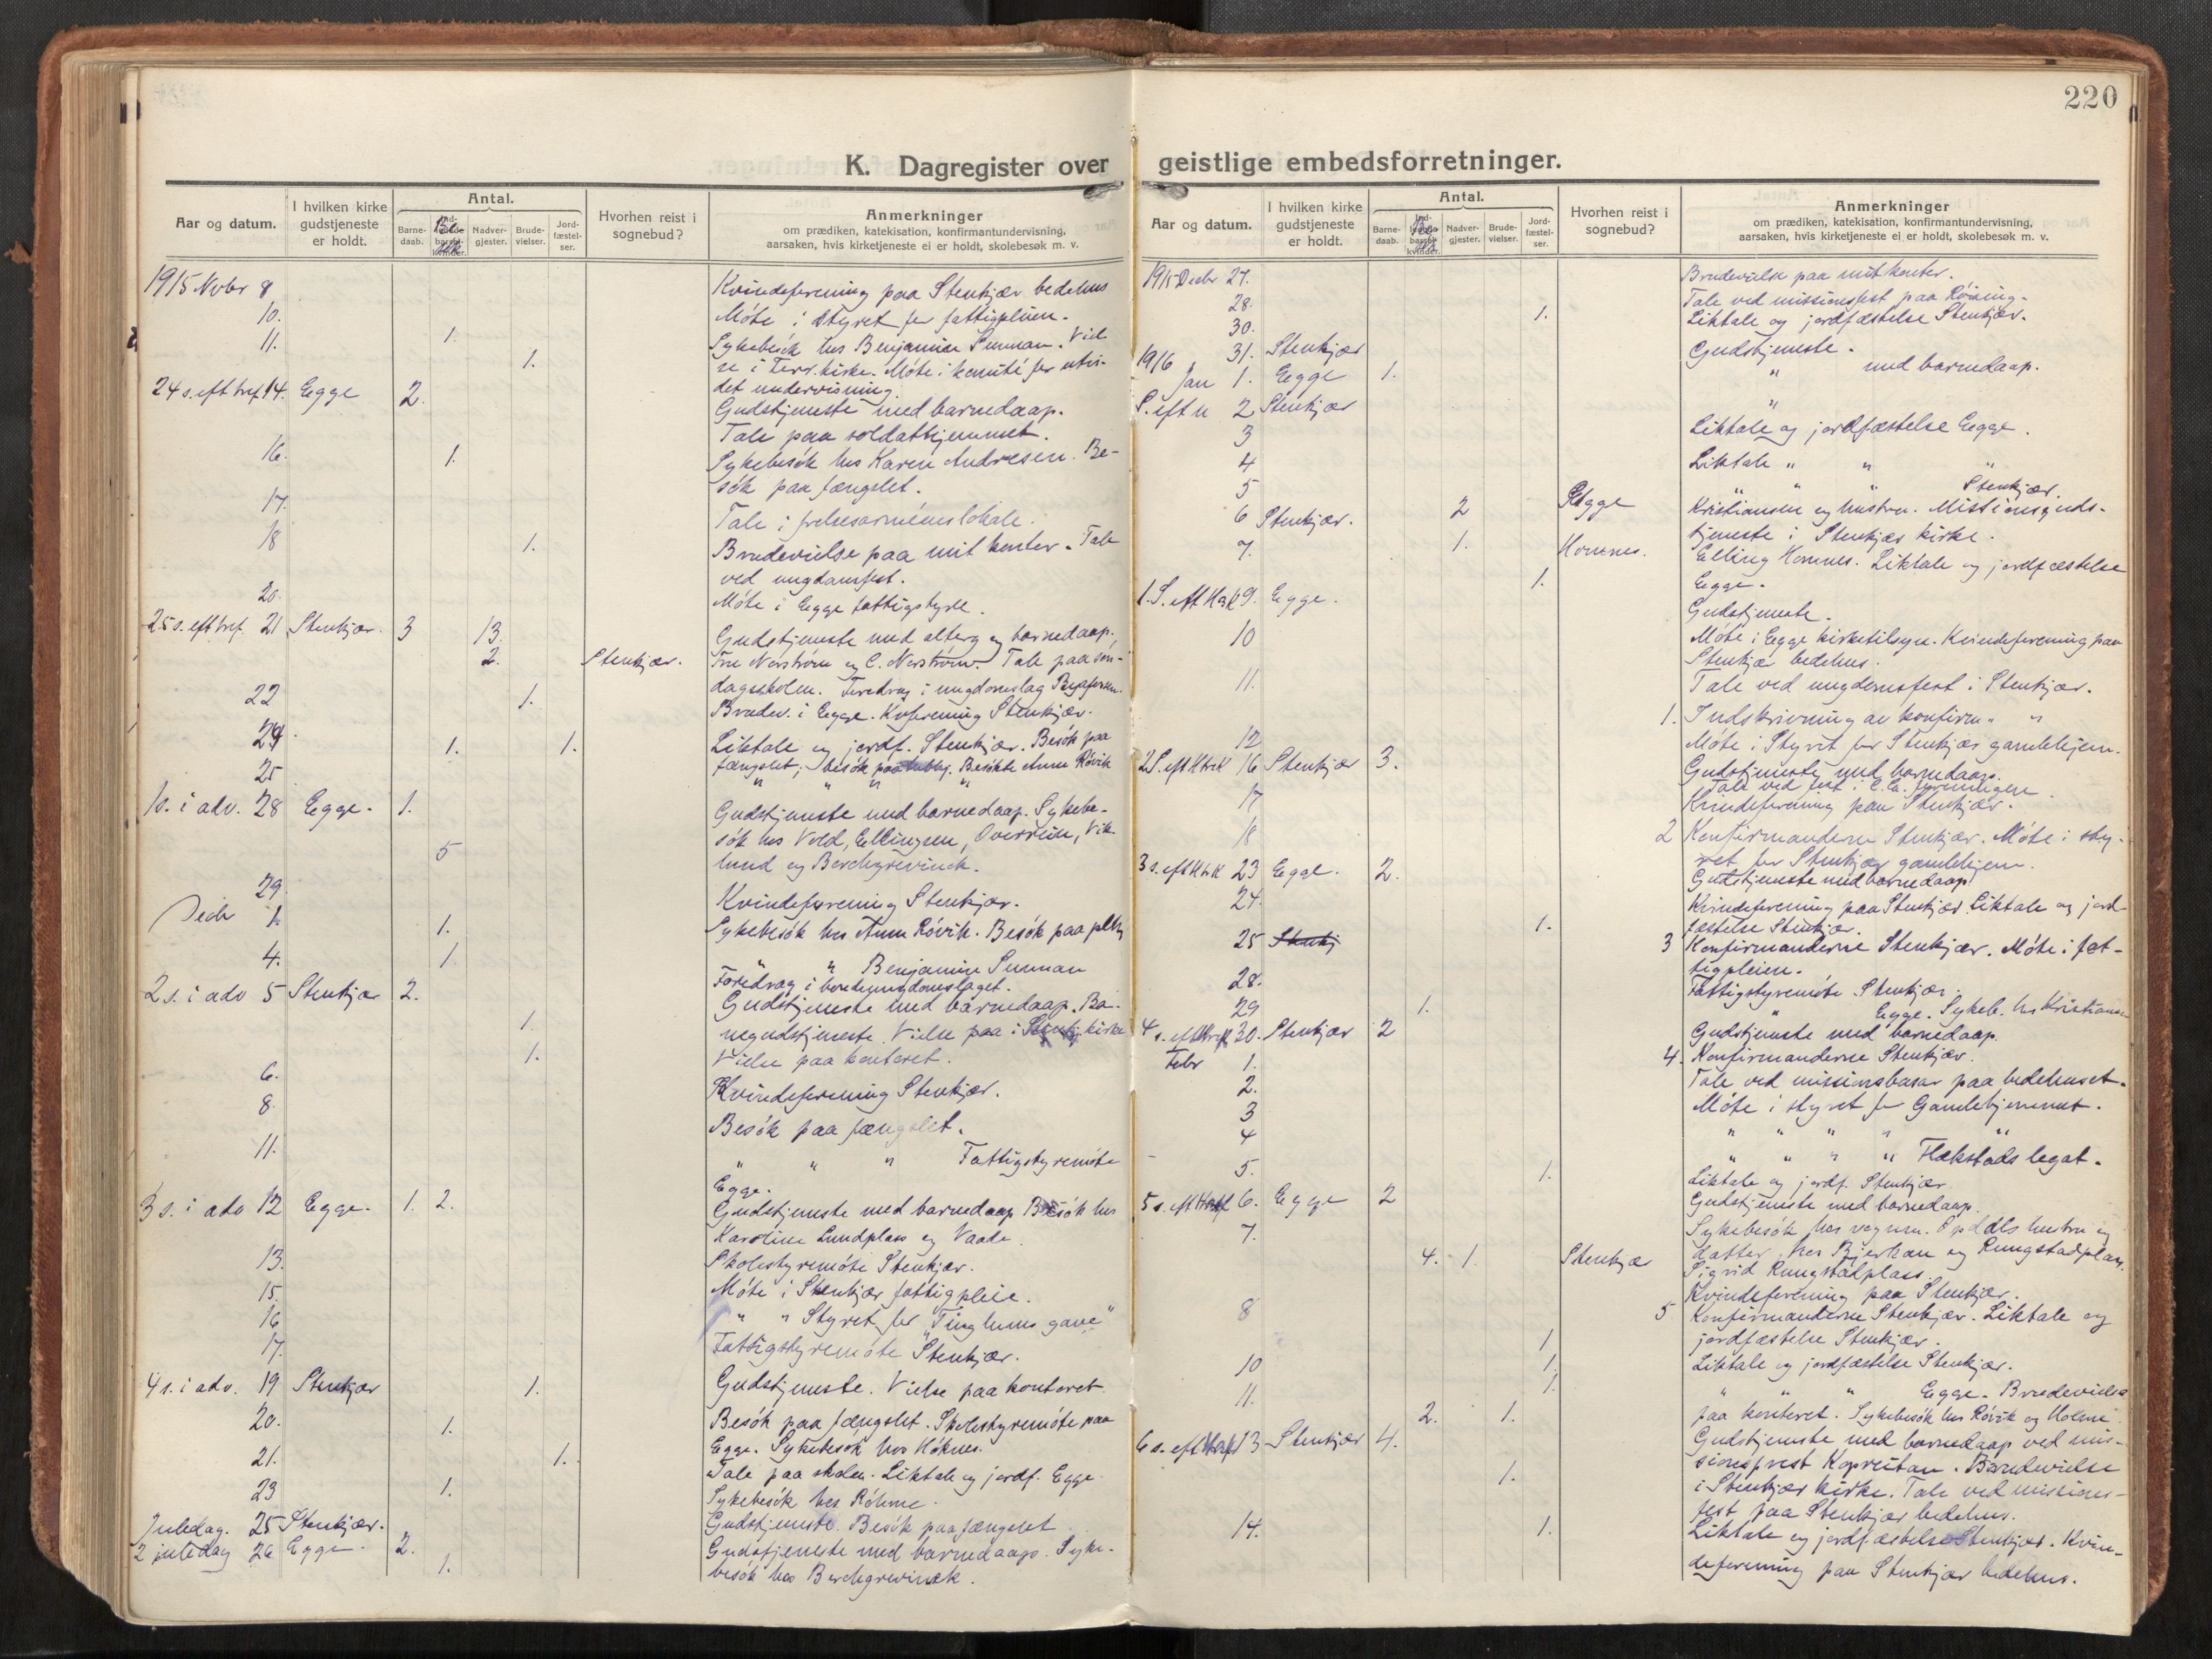 220
K. Dagregister over geistlige embedsforretninger.
Aar og datum.
I hvilken kirke gudstjeneste er holdt.
Antal.
Barne-daab.
Nadver-gjester.
Brude-vielser.
Jord-fæstel-ser.
Hvorhen reist i sognebud?
Anmerkninger
om prædiken, katekisation, konfirmantundervisning,
aarsaken, hvis kirketjeneste ei er holdt, skolebesøk m. v.
1915 Novbr 8 Kvindeforening paa Stenkjær bedehus
10. Møte i styret for fattigpleien.
11. 1. Sykebesøk hos Benjamin Sunnan. Viel-
1. se i Terr. kirke. Møte i komité for utvi-
det undervisning.
24 s. eft tref 14. Egge 2. Gudstjeneste med barnedaap.
Tale paa soldathjemmet.
16. 1. Sykebesøk hos Karen Andresen. Be-
søk paa fængslet.
17. Tale i frelsesarmeens lokale.
18 1. Brudevielse paa mit kontor. Tale
ved ungdomsfest.
20. Møte i Egge fattigstyre.
25 s. eft tref 21 Stenkjær. 3 13. Gudstjeneste med alterg og barnedaap.
2. Stenkjær. Fru Nerstrøm og C. Nerstrøm. Tale paa søn-
dagsskolen. Foredrag i ungdomslag
22 1. Brudev. i Egge. Kvforening Stenkjær.
24 1. 1. Liktale og jordf. Stenkjær. Besøk paa
fængslet; besøk Besøkte Anne Røvik
25 " " " "
1 s. i adv. 28 Egge. 1. Gudstjeneste med barnedaap. Sykebe-
søk hos Vold, Ellingsen, Overrein, Vik-
5 lund og Borchgrevinck.
29. Kvindeforening Stenkjær.
Decbr 1. 1. Sykebesøk hos Anne Røvik. Besøk paa
4. 1 " " Benjamin Sunnan
Foredrag i bondeungdomslaget.
2 s. i adv 5 Stenkjær 2. Gudstjeneste med barnedaap. Bar-
1. negudstjeneste. Vielse paa i Stenkj. kirke
1. Vielse paa kontoret.
6. Kvindeforening Stenkjær.
8. Besøk paa fængslet.
11. " " " Fattigstyremøte
Egge.
3 s. i adv 12 Egge. 1. 2. Gudstjeneste med barnedaap Besøk hos
Karoline Lundplass og Vaade.
13. Skolestyremøte Stenkjær.
15. Møte i Stenkjær fattigpleie.
16 " " Styret for "Tinglums gave"
17. Fattigstyremøte Stenkjær.
4 s. i adv. 19 Stenkjær 1. Gudstjeneste. Vielse paa kontoret
20. 1. Besøk paa fængslet. Skolestyremøte paa
Egge. Sykebesøk hos Høknes.
21. 1. Tale paa skolen. Liktale og jordf. Egge.
23 1. Sykebesøk hos Røhme.
Juledag. 25 Stenkjær. Gudstjeneste. Besøk paa fængslet
2 juledag 26 Egge. 2. Gudstjeneste med barnedaap. Syke-
1. besøk hos Borchgrevinck.
Aar og datum.
I hvilken kirke gudstjeneste er holdt.
Antal.
Barne-daab.
Nadver-gjester.
Brude-vielser.
Jord-fæstel-ser.
Hvorhen reist i sognebud?
Anmerkninger
om prædiken, katekisation, konfirmantundervisning,
aarsaken, hvis kirketjeneste ei er holdt, skolebesøk m. v.
1915 Decbr 27. Brudevielse paa mit kontor.
28. Tale ved missionsfest paa Røising.
30. 1. Liktale og jordfæstelse Stenkjær.
31. Stenkjær Gudstjeneste.
1916 Jan 1. Egge 1. " med barnedaap.
S. eft n 2 Stenkjær "
3 Liktale og jordfæstelse Egge.
4 Liktale " " "
5 " " " Stenkjær.
6 Stenkjær. 2 Egge Kristiansen og hustru. Missionsguds-
tjeneste i Stenkjær kirke.
7. 1. Homnes. Elling Homnes. Liktale og jordfæstelse
1. Egge.
1. S. eft H3k 9. Egge. Gudstjeneste.
10 Møte i Egge kirketilsyn. Kvindeforening paa
Stenkjær bedehus.
11. Tale ved ungdomsfest i Stenkjær.
1. Indskrivning av konfirm. "
12 Møte i Styret for Stenkjær gamlehjem.
2 S. eft H3k 16 Stenkjær 3. Gudstjeneste med barnedaap.
Tale ved fest i foreningen.
17 Kvindeforening paa Stenkjær.
18 2 Konfirmanderne Stenkjær. Møte i sty-
ret for Stenkjær gamlehjem.
3 s. eft H3k 23 Egge. 2. Gudstjeneste med barnedaap.
24. Kvindeforening paa Stenkjær. Liktale og jord-
1. fæstelse Stenkjær.
25 Stenkj 3 Konfirmanderne Stenkjær. Møte i fat-
tigpleien.
28. Fattigstyremøte Stenkjær.
29 1. " Egge. Sykeb. hos Kristiansen
4 s. eft H3k 30. Stenkjær 2 Gudstjeneste med barnedaap.
Febr 1. 4. Konfirmanderne Stenkjær.
2. Tale ved missionsbasar paa bedehuset.
3 Møte i styret for Gamlehjemmet.
4 " " " " "
5. " " " " Flekstads legat.
1. Liktale og jordf. Stenkjær
5 s. eft H3k 6. Egge 2 Gudstjeneste med barnedaap.
7. Sykebesøk hos vognm. Opdals hustru og
datter, hos Bjerkan og Rungstadplass.
4. 1. Stenkjær Sigrid Rungstadplass.
Kvindeforening paa Stenkjær.
8 5 Konfirmanderne Stenkjær. Liktale og
1 jordfæstelse Stenkjær.
10 1. Liktale og jordfæstelse Stenkjær.
11. 1. " " " Egge. Brudevielse
2. 1. paa kontoret. Sykebesøk hos Røvik og Holme.
6 s. eft H3k 13 Stenkjær 4. Gudstjeneste med barnedaap ved mis-
sionsprest Kopreitan. Brudevielse
1. i Stenkjær kirke. Tale ved missions-
fest paa Stenkjær bedehus.
14. 1. Liktale og jordfæstelse Stenkjær. Kvin-
deforening paa Stenkjær bedehus.